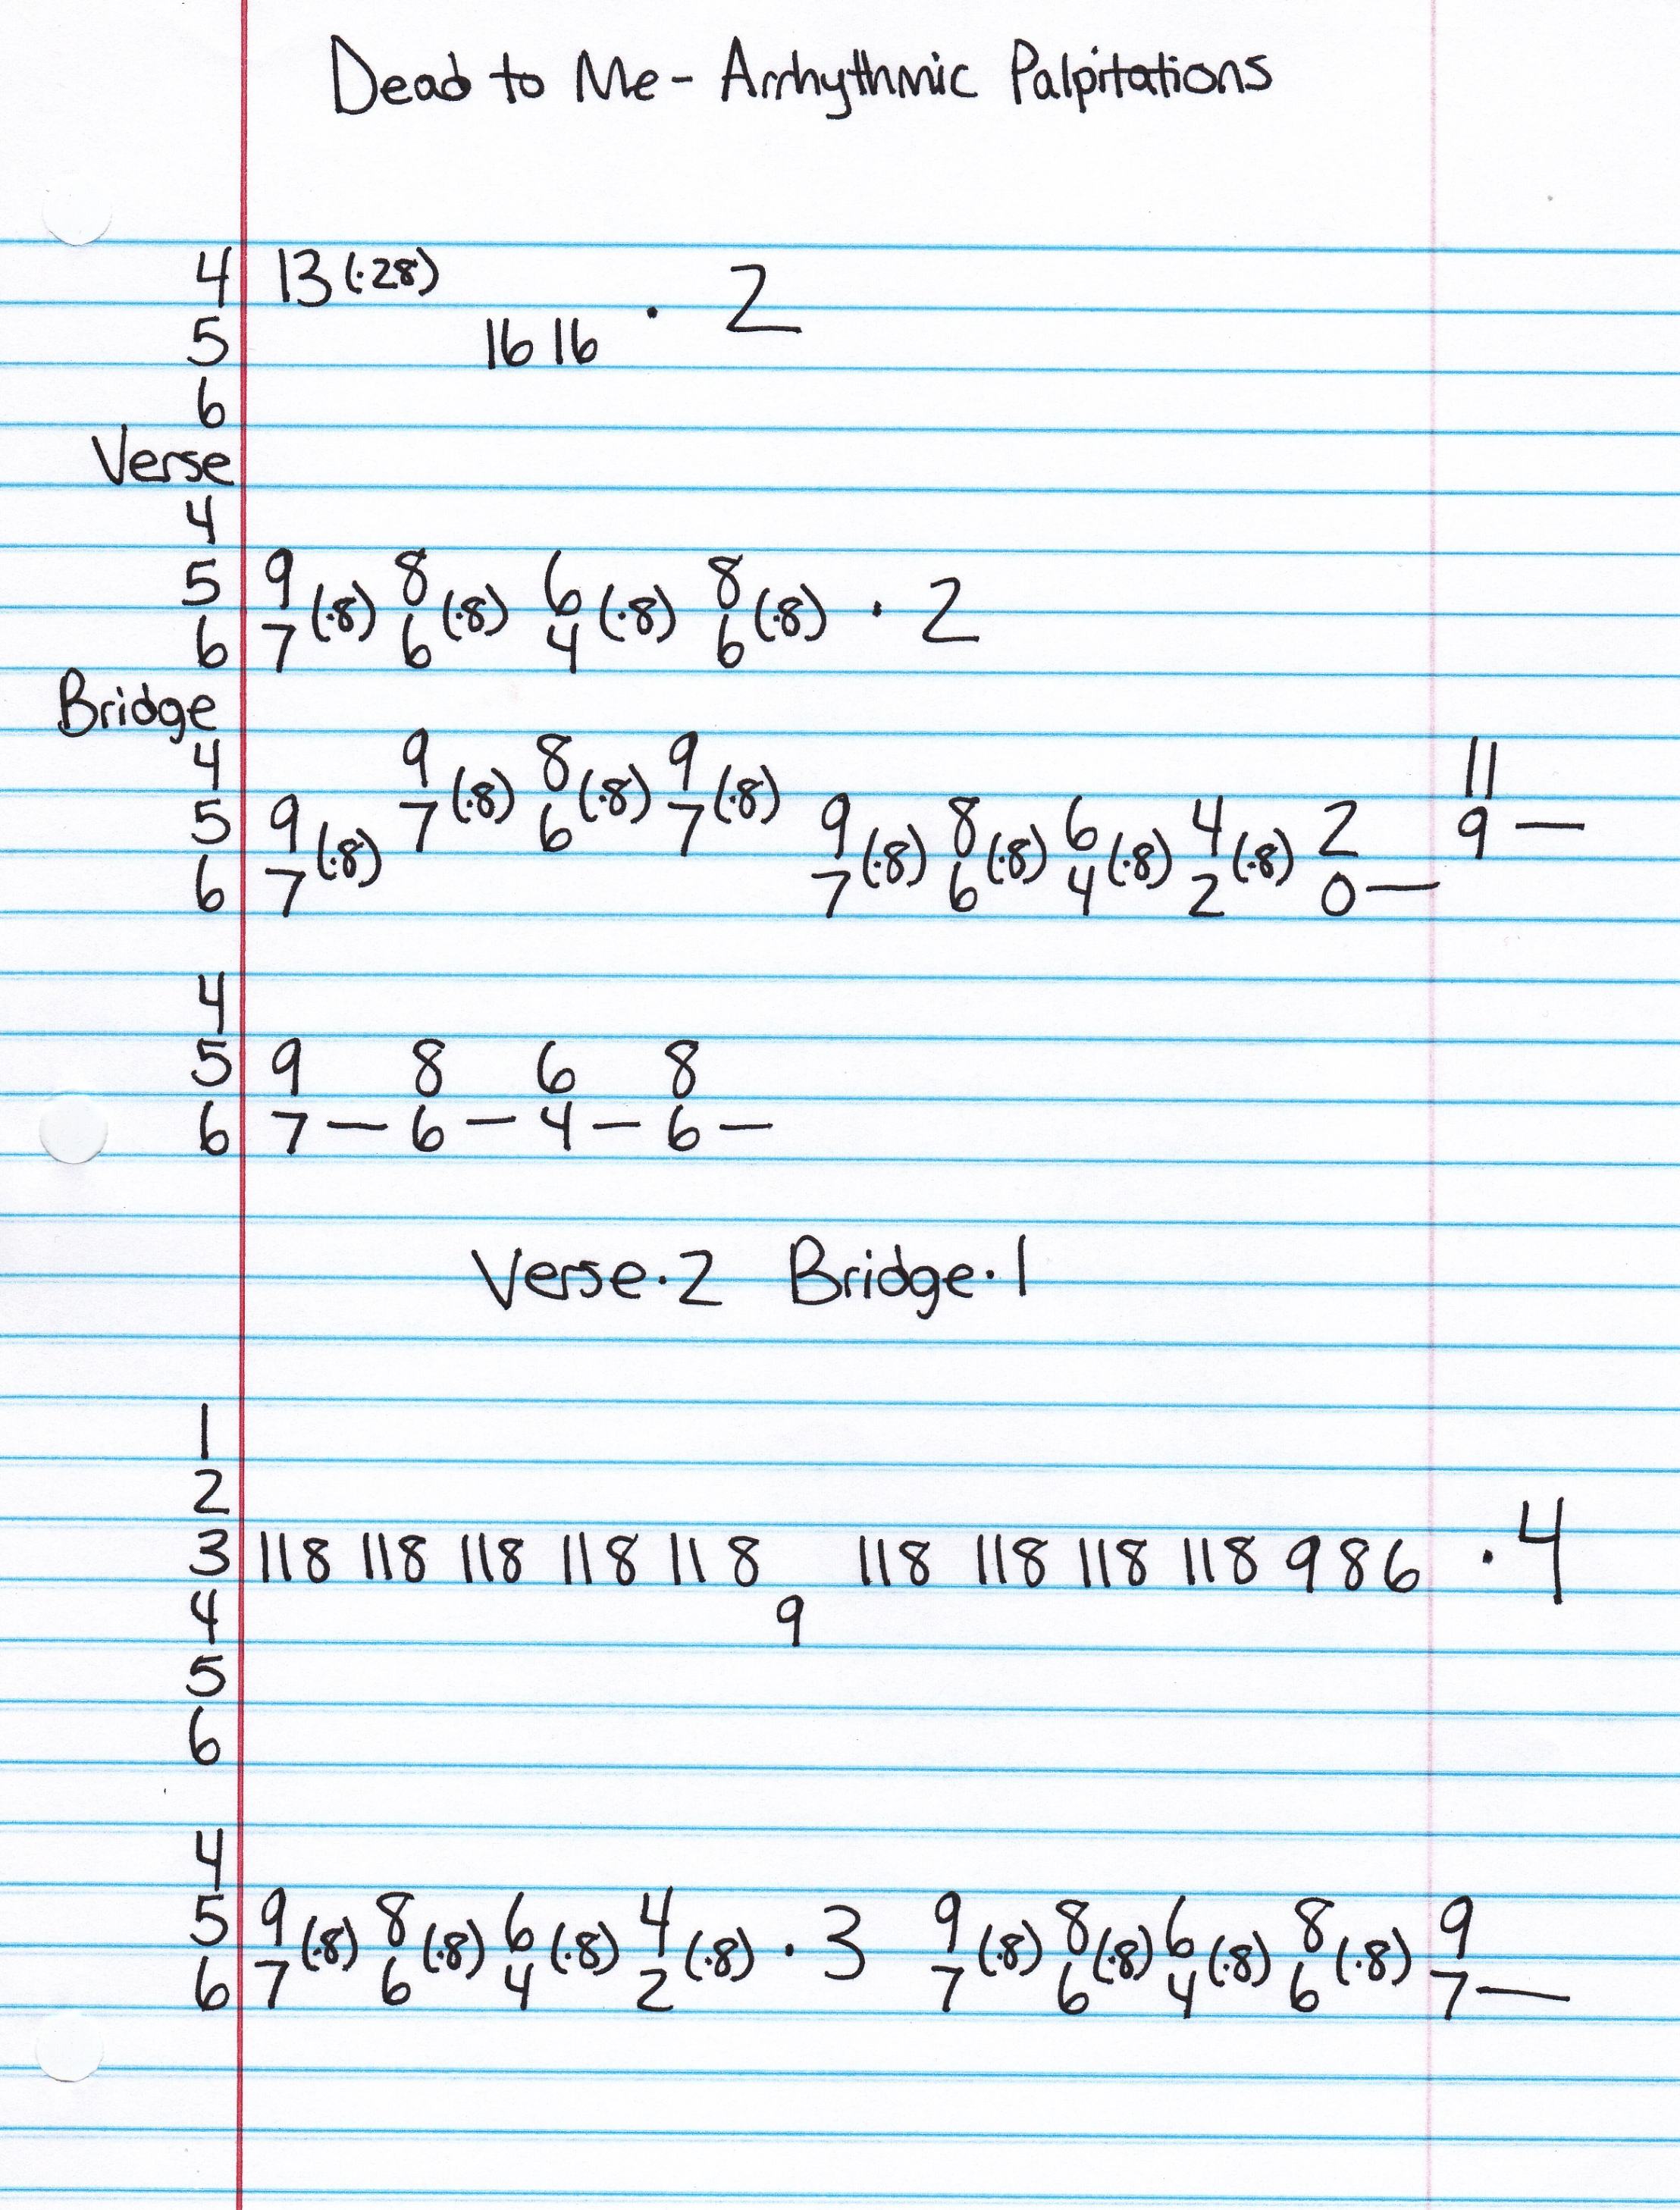 Dead to Me - Arrhythmic Palpitations
4 13 (·28)
· 2
5 16 16
6
Verse
4
5 9 8 6 8
(·8) (·8) (·8) (·8) · 2
6 7 6 4 6
Bridge
4 9 8 9 11
(·8) (·8) (·8)
5 9 7 6 7 9 8 6 4 2 9 —
(·8) (·8) (·8) (·8) (·8)
6 7 7 6 4 2 0 —
4
5 9 8 6 8
6 7 — 6 — 4 — 6 —
Verse · 2 Bridge · 1
1
2
3 118 118 118 118 118 118 118 118 118 986 · 4
4 9
5
6
4
5 9 8 6 4 9 8 6 8 9
(·8) (·8) (·8) (·8) · 3 (·8) (·8) (·8) (·8)
6 7 6 4 2 7 6 4 6 7 —